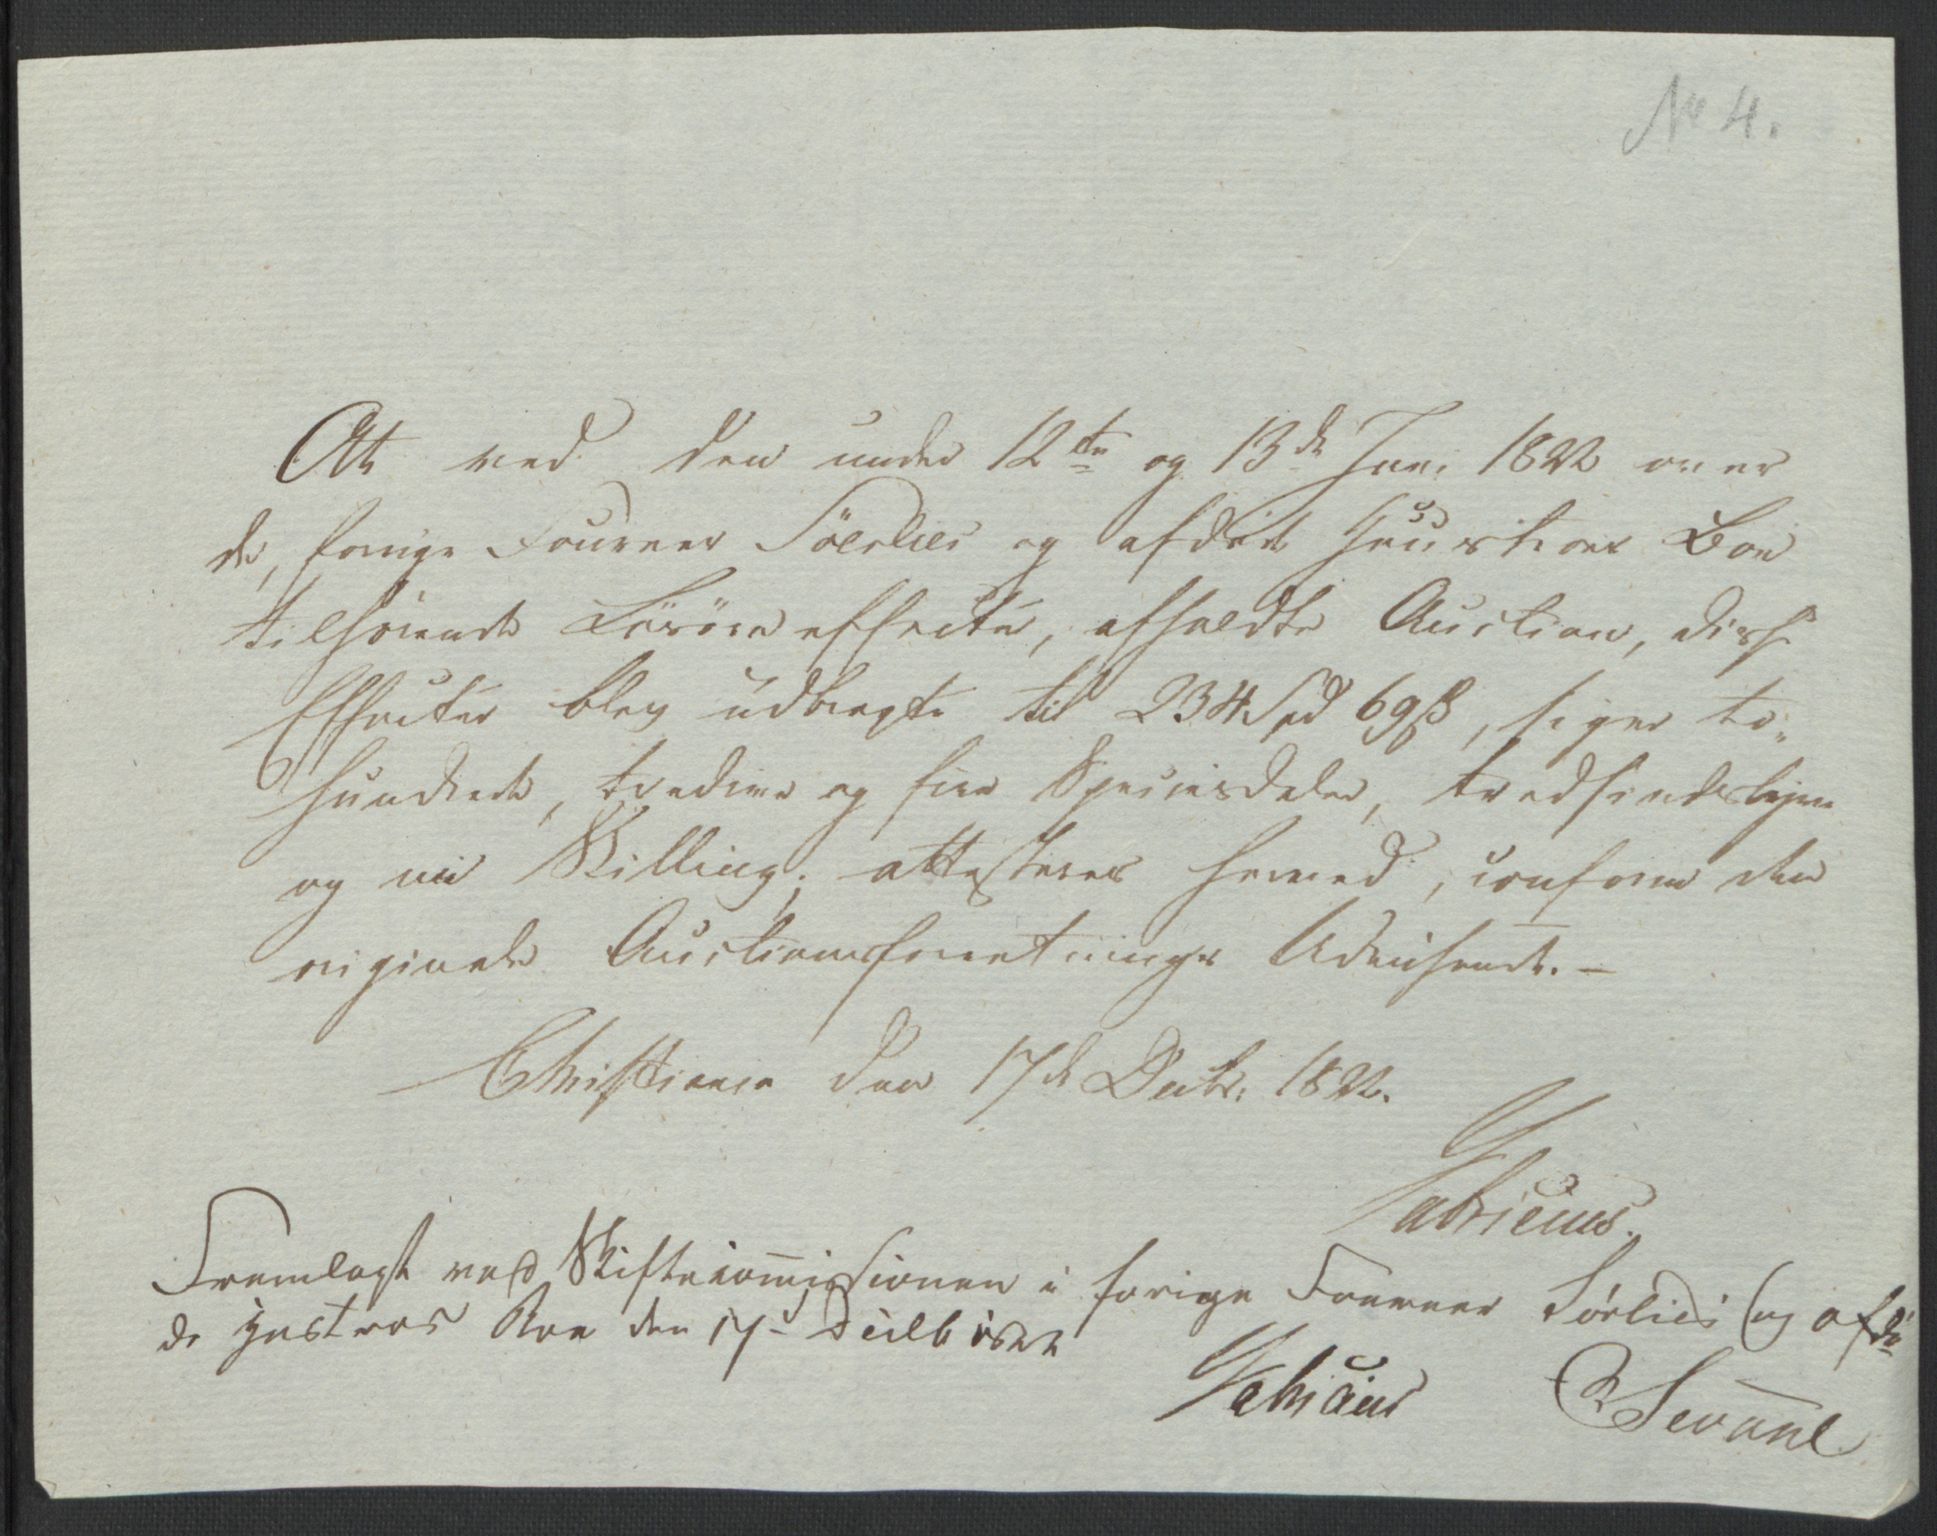 No 4.
At ved den under 12te og 13de Juni 1822 over
de, forrige Foureer Sörlies og afdöde Hustroes Boe
tilhörende Lösöreeffecter, afholdte Auction, disse
Effecter blev udbragte til 234 Spd 69 ß, siger to-
hundrede, tredive og fire Speciesdaler, tredsindstyve
og ni Skilling; attesteres herved, conform den
originale Auctionsforretnings Udvisende. —
Christiania den 17de Decbr. 1822.
Fabricius.
Fremlagt ved Skiftecommissionen i forrige Foureer Sörlies (og afdö-
de Hustroes Boe den 17de Decbr 1822
Fabricius